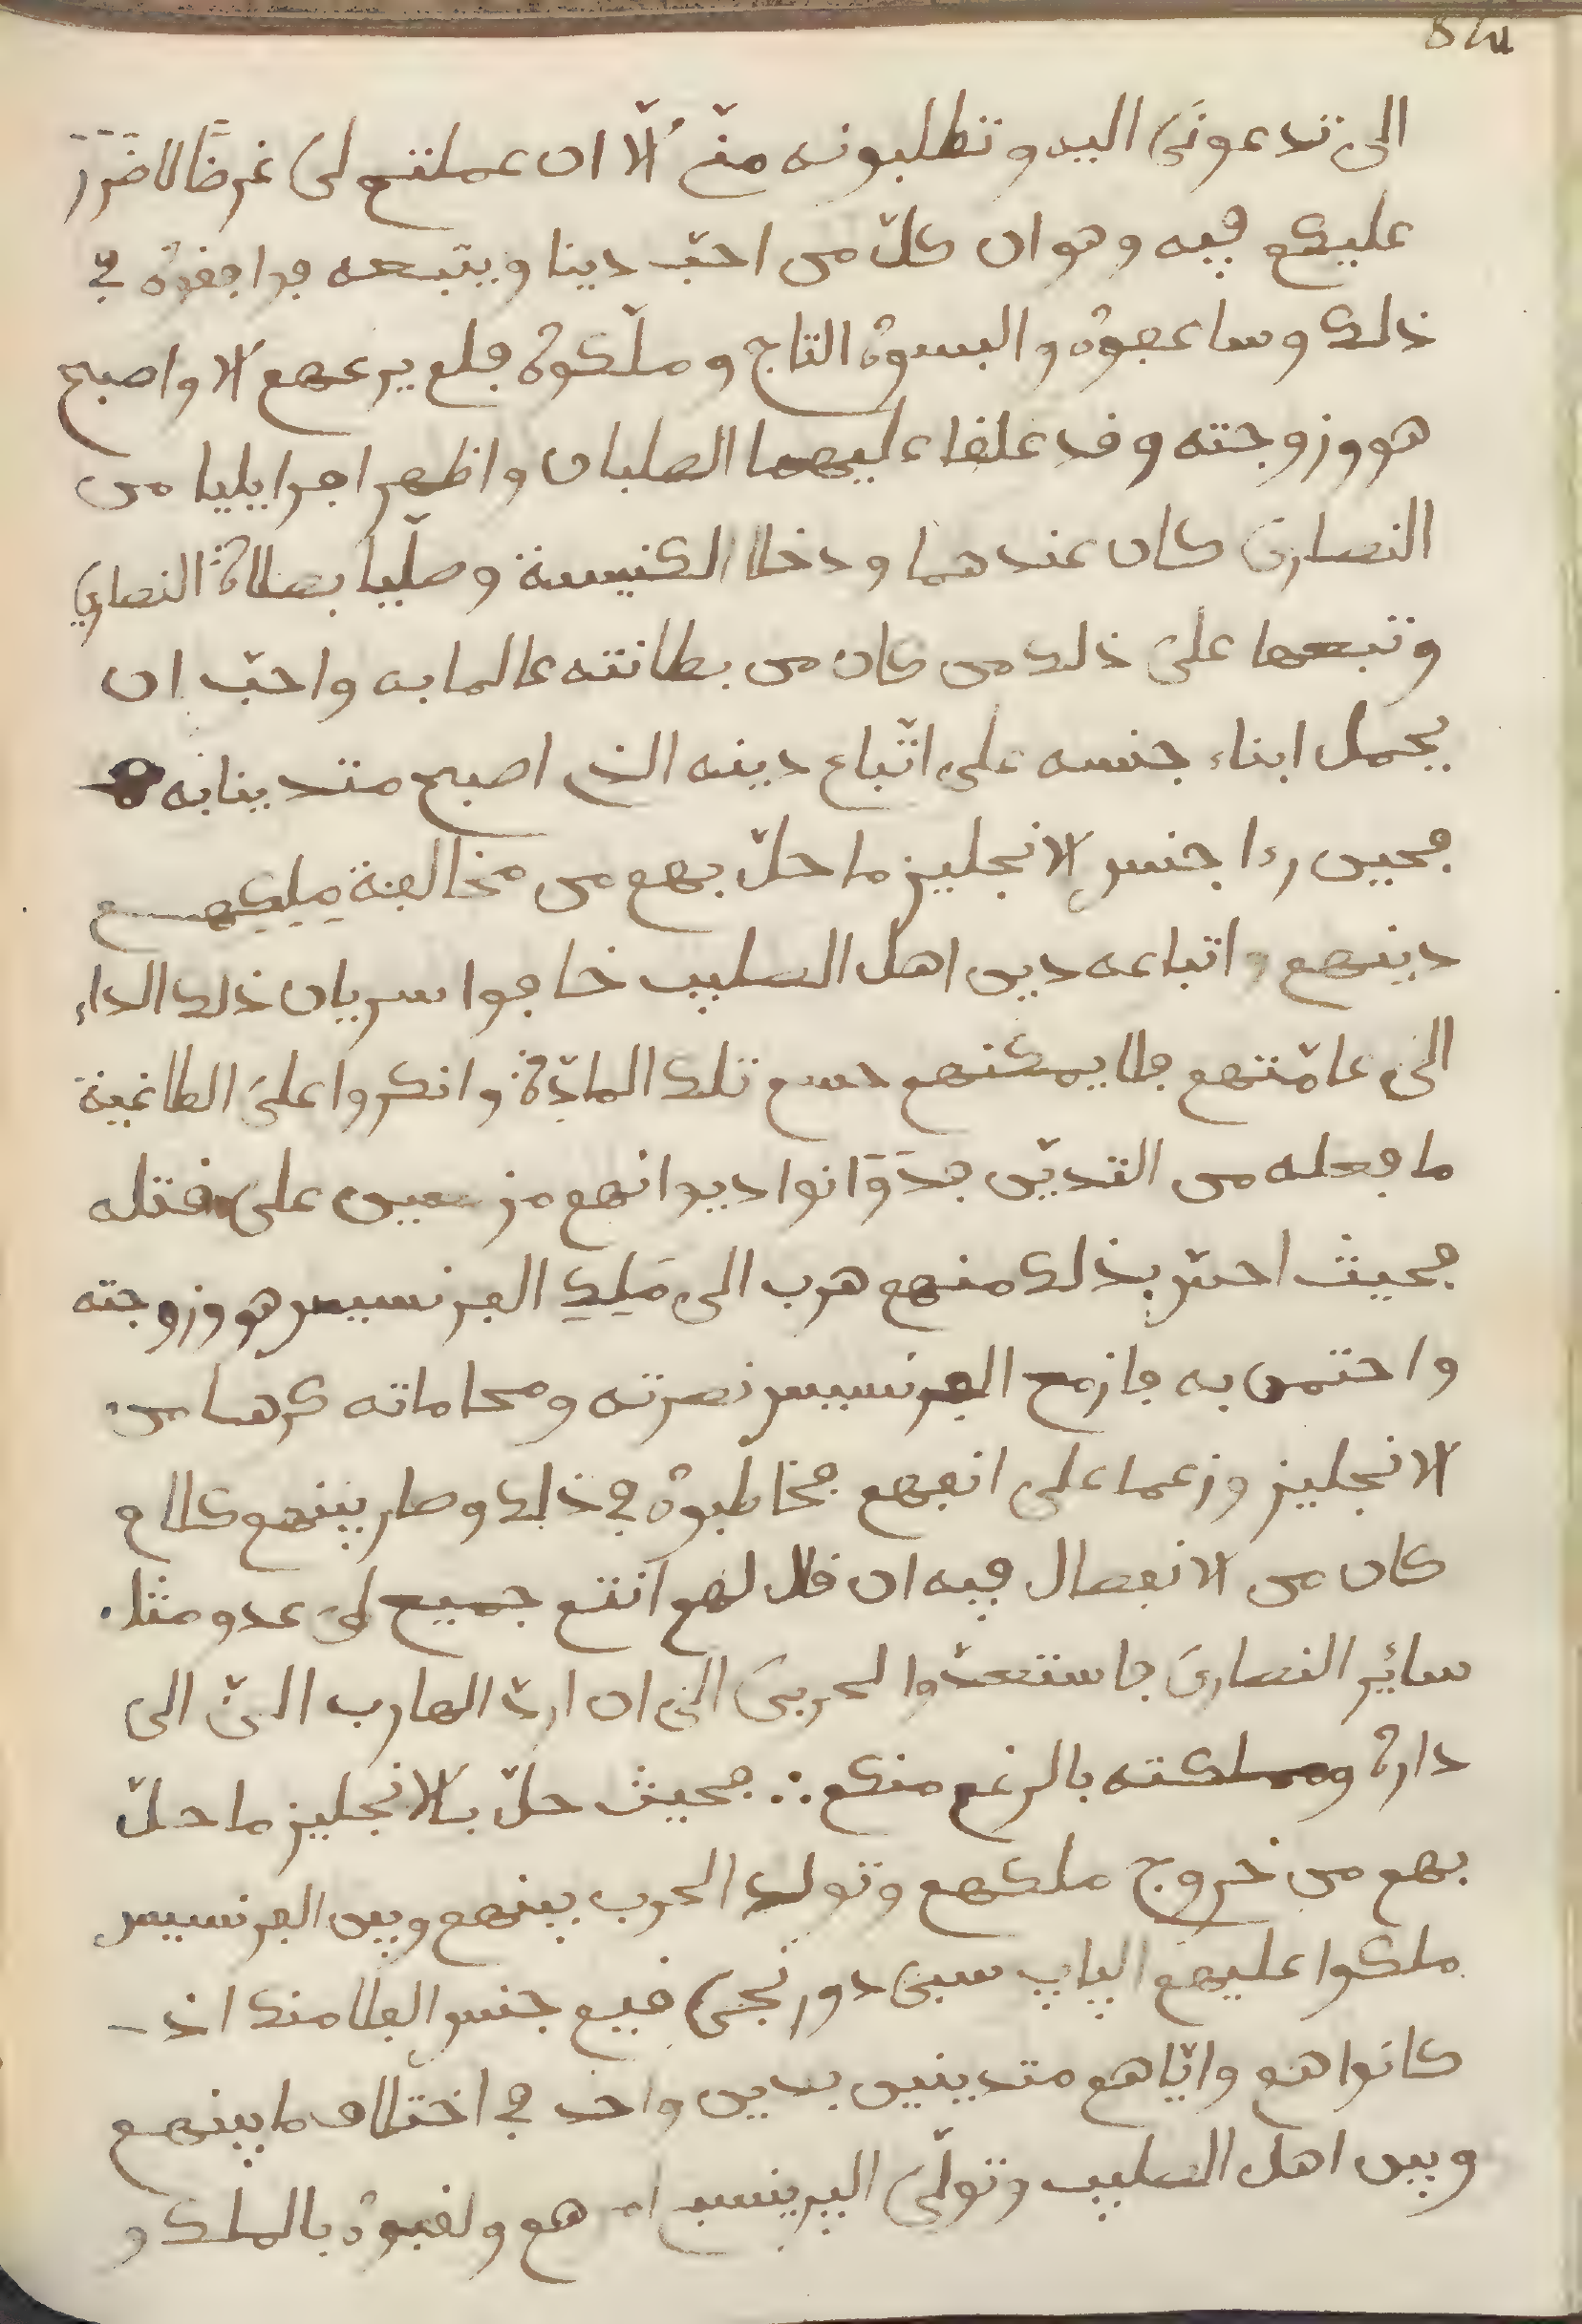 الى تدعونى اليه وتطلبونه منّى الّا ان عملتم لى غرضًا لا ضَرَرَ
عليكم فيه وهو ان كلّ من احبّ دينا ويتبعه فوافقوه فى
ذلك وساعفوه والبسوه التاج وملّكوه فلم يرعهم الا واصبح
هو وزوجته وقد علقا عليهما الصلبان واظهر افرايليا من
النصارى كان عندهما ودخلا الكنيسة وصلّيا بصلاة النصارى
وتبعهما على ذلك من كان من بطانته عالما به واحبّ ان
يحمل ابناء جنسه على اتّباع دينه الذى اصبح متدينا به
فحين رءا جنس الانجليز ما حلّ بهم من مخالفة مِلِكِهم
دينهم واتباعه دين اهل الصليب خافوا سريان ذلك الداء
الى عامّتهم فلا يمكنهم حسم تلك المادّة وانكروا على الطاغية
ما فعله من التديّن فدَوَّانوا ديوانهم مزمعين على قتله
فحيث احسّ بذلك منهم هرب الى مَلِكِ الفرنسيس هو وزوجته
واحتمى به فازمع الفرنسيس نصرته ومحاماته كرها من
الانجليز وزعما على انفهم فخاطبوه فى ذلك وصار بينهم كلام
كان من الانفصال فيه ان قال لهم انتم جميع لى عدو مثل
سائر النصارى فاستعدّوا لحربى الى ان اردّ الهارب الىّ الى
داره ومملكته بالرغم منكم ∴ فحيث حلّ بالانجليز ما حلّ
بهم من خروج ملكهم وتولد الحرب بينهم وبين الفرنسيس
ملكوا عليهم الپاپ سبى دورنجى فيم جنس الفلامنك اذ
كانوا هم وايّاهم متدينين بدين واحد فى اختلاف ما بينهم
وبين اهل الصليب وتولّى البرينسب هم ولقبوه بالملك و